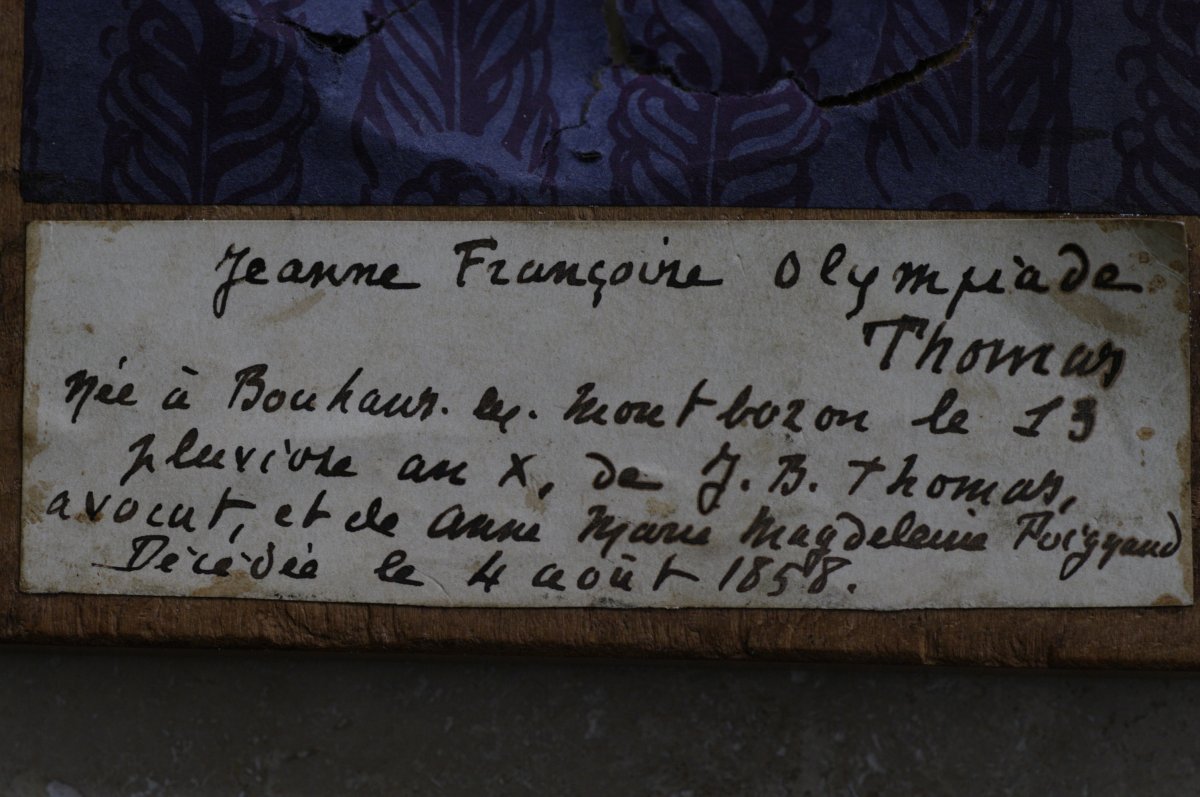 Jeanne Françoise Olympiade
Thomas
Née à Bouhans. les. Montbozon le 13
pluviose an X, de J. B. Thomas,
avocat, et de Anne Marie Magdeleine
Décédée le 4 août 1858.